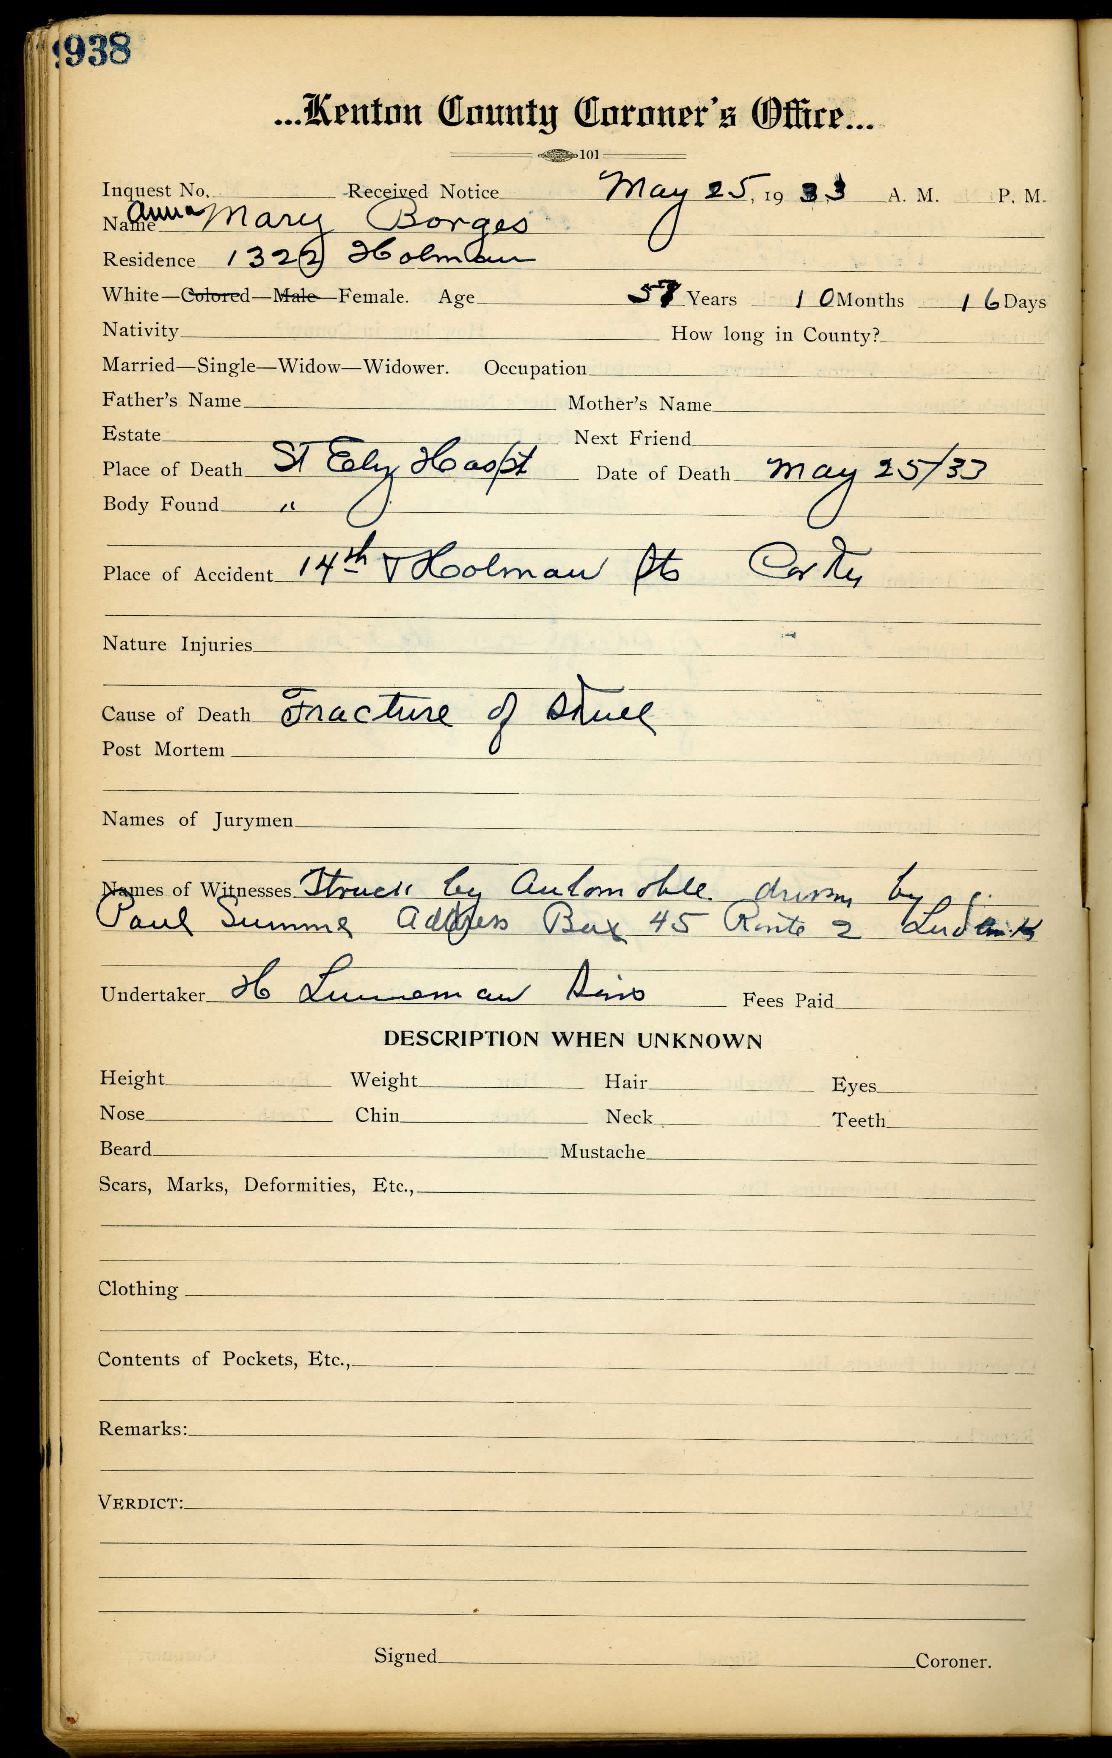 938
...Kenton County Coroner's Office...
101
Inquest No. Received Notice May 25, 19 33 A. M. P. M.
Name Anna Mary Borges
Residence 1322 Holman
White—Colored—Male—Female. Age 57 Years 10 Months 16 Days
Nativity How long in County?
Married—Single—Widow—Widower. Occupation
Father's Name Mother's Name
Estate Next Friend
Place of Death St Eliz Hospt Date of Death May 25/33
Body Found "
Place of Accident 14th & Holman Sts
Nature Injuries
Cause of Death Fracture of Skull
Post Mortem
Names of Jurymen
Names of Witnesses Struck by Automobile driven by
Paul Summe Address Box 45 Route 2
Undertaker H Linneman Sons Fees Paid
DESCRIPTION WHEN UNKNOWN
Height Weight Hair Eyes
Nose Chin Neck Teeth
Beard Mustache
Scars, Marks, Deformities, Etc.,
Clothing
Contents of Pockets, Etc.,
Remarks:
VERDICT:
Signed Coroner.